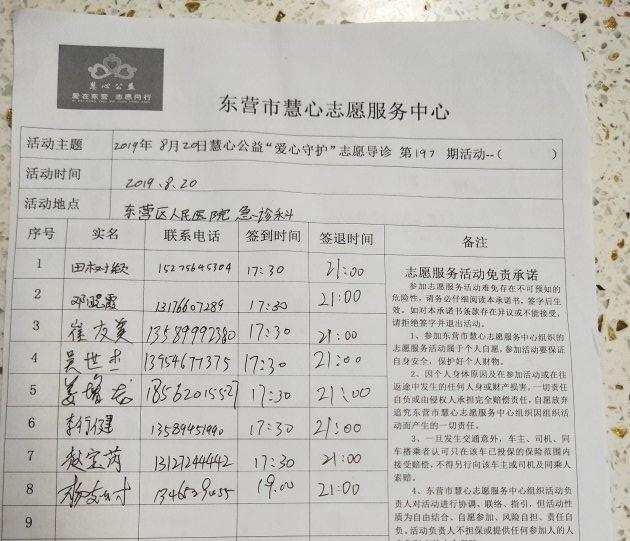 慧心公益
爱在东营 志愿同行
东营市慧心志愿服务中心
活动主题 2019年 8月20日慧心公益“爱心守护”志愿导诊 第197 期活动--( )
活动时间 2019.8.20
活动地点 东营区人民医院 急诊科
序号 实名 联系电话 签到时间 签退时间 备注
1 15275645304 17:30 21:00
2 邓晓霞 13176607289 17:30 21:00
3 崔友英 13589992380 17:30 21:00
4 吴世杰 13954677375 17:30 21:00
5 18562015527 17:30 21:00
6 李行健 13589451990 17:30 21:00
7 赵宝芮 13127244442 17:30 21:00
8 19.00 21:00
9
志愿服务活动免责承诺
参加志愿服务活动难免存在不可预知的
危险性，请务必仔细阅读本承诺书，签字后生
效。如对本承诺书条款存在异议或不能接受，
请拒绝签字并退出活动。
1、参加东营市慧心志愿服务中心组织的
志愿服务活动属于个人自愿，参加活动要保证
自身安全，保护好个人财物。
2、因个人身体原因及在参加活动或在往
返途中发生的任何人身或财产损害，一切责任
自负或由侵权人承担完全赔偿责任，自愿放弃
追究东营市慧心志愿服务中心组织因组织活动
而产生的一切责任。
3、一旦发生交通意外，车主、司机、同
车搭乘者认可只在该车已投保的保险范围内
接受赔偿，不得另行向该车主或司机及同乘人
索赔。
4、东营市慧心志愿服务中心组织活动负
责人对活动进行协调、联络、指引，但活动性
质为自由结合、自愿参加、风险自担、责任自
负。活动负责人不担保或提供任何参加人的人